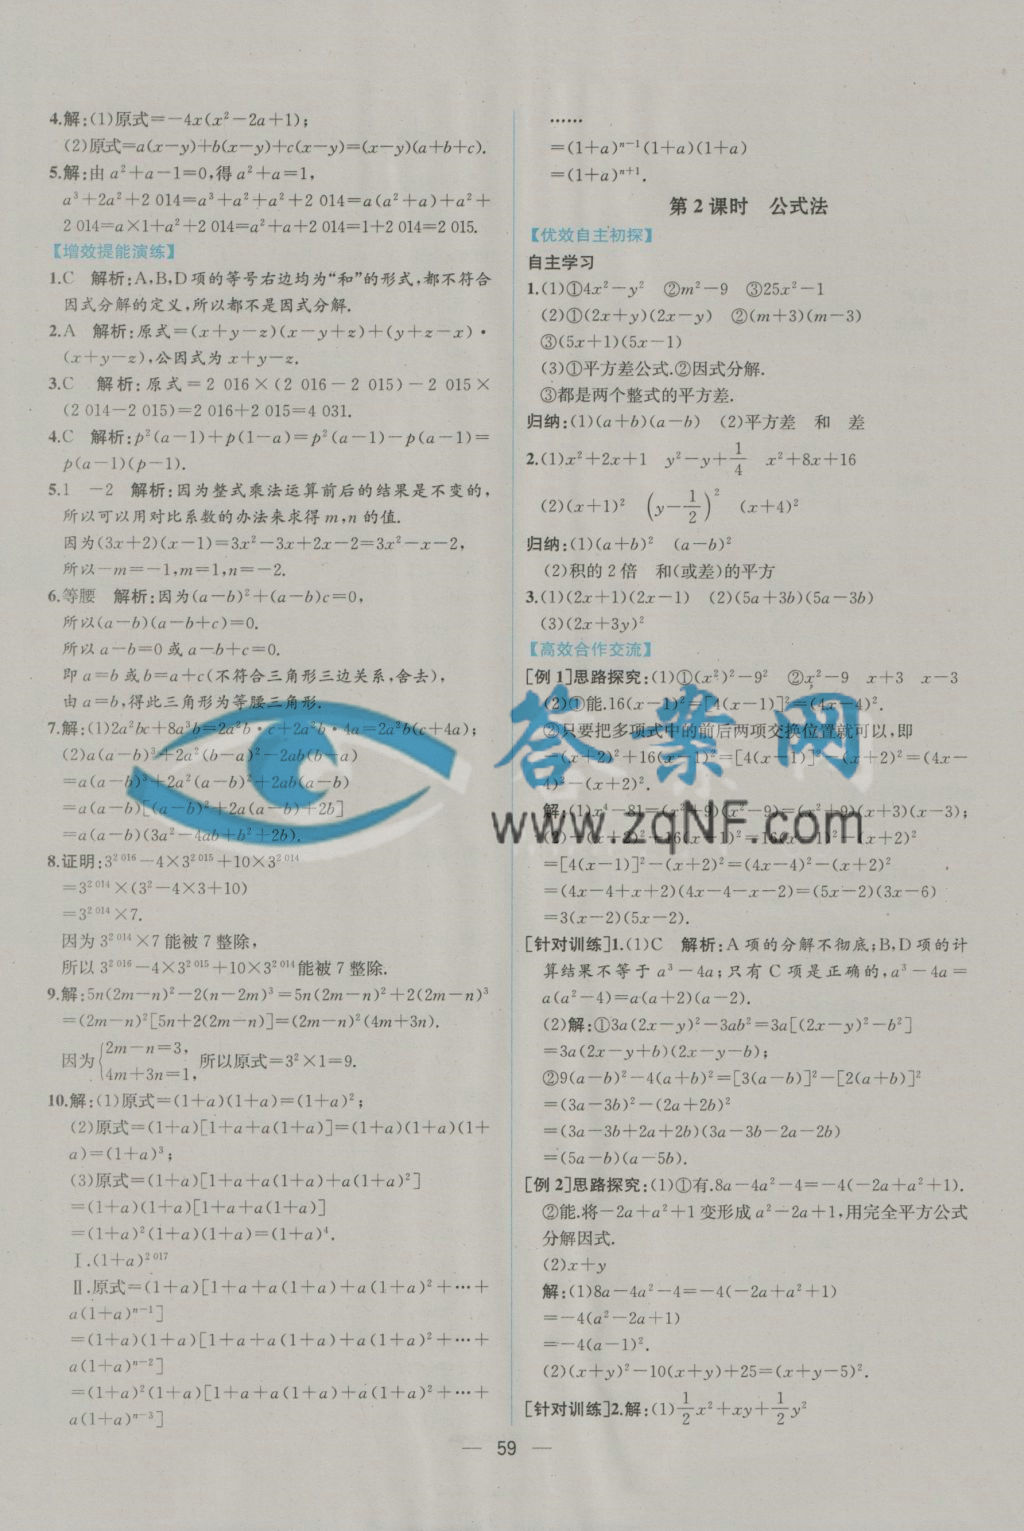 4.解:(1)原式=-4x(x²-2a+1);
(2)原式=a(x-y)+b(x-y)+c(x-y)=(x-y)(a+b+c).
5.解:由a²+a-1=0,得a²+a=1,
a³+2a²+2 014=a³+a²+a²+2 014=a(a²+a)+a²+
2 014=a×1+a²+2 014=a²+a+2 014=1+2 014=2 015.
【增效提能演练】
1.C 解析:A,B,D项的等号右边均为“和”的形式,都不符合
因式分解的定义,所以都不是因式分解.
2.A 解析:原式=(x+y-z)(x-y+z)+(y+z-x)·
(x+y-z),公因式为x+y-z.
3.C 解析:原式=2 016×(2 016-2 015)-2 015×
(2 014-2 015)=2 016+2 015=4 031.
4.C 解析:p²(a-1)+p(1-a)=p²(a-1)-p(a-1)=
p(a-1)(p-1).
5.1 -2 解析:因为整式乘法运算前后的结果是不变的,
所以可以用对比系数的办法来求得m,n的值.
因为(3x+2)(x-1)=3x²-3x+2x-2=3x²-x-2,
所以-m=-1,m=1,n=-2.
6.等腰 解析:因为(a-b)²+(a-b)c=0,
所以(a-b)(a-b+c)=0.
所以a-b=0或a-b+c=0.
即a=b或b=a+c(不符合三角形三边关系,舍去),
由a=b,得此三角形为等腰三角形.
7.解:(1)2a²bc+8a³b=2a²b·c+2a²b·4a=2a²b(c+4a);
(2)a(a-b)³+2a²(b-a)²-2ab(b-a)
=a(a-b)³+2a²(a-b)²+2ab(a-b)
=a(a-b)[(a-b)²+2a(a-b)+2b]
=a(a-b)(3a²-4ab+b²+2b).
8.证明:3²⁰¹⁶-4×3²⁰¹⁵+10×3²⁰¹⁴
=3²⁰¹⁴×(3²-4×3+10)
=3²⁰¹⁴×7.
因为3²⁰¹⁴×7能被7整除,
所以3²⁰¹⁶-4×3²⁰¹⁵+10×3²⁰¹⁴能被7整除.
9.解:5n(2m-n)²-2(n-2m)³=5n(2m-n)²+2(2m-n)³
=(2m-n)²[5n+2(2m-n)]=(2m-n)²(4m+3n).
因为{2m-n=3, 4m+3n=1, 所以原式=3²×1=9.
10.解:(1)原式=(1+a)(1+a)=(1+a)²;
(2)原式=(1+a)[1+a+a(1+a)]=(1+a)(1+a)(1+
a)=(1+a)³;
(3)原式=(1+a)[1+a+a(1+a)+a(1+a)²]
=(1+a)(1+a)[1+a+a(1+a)]
=(1+a)²(1+a)(1+a)=(1+a)⁴.
Ⅰ.(1+a)²⁰¹⁷
Ⅱ.原式=(1+a)[1+a+a(1+a)+a(1+a)²+…+
a(1+a)ⁿ⁻¹]
=(1+a)(1+a)[1+a+a(1+a)+a(1+a)²+…+
a(1+a)ⁿ⁻²]
=(1+a)²(1+a)[1+a+a(1+a)+a(1+a)²+…+
a(1+a)ⁿ⁻³]
……
=(1+a)ⁿ⁻¹(1+a)(1+a)
=(1+a)ⁿ⁺¹.
第2课时 公式法
【优效自主初探】
自主学习
1.(1)①4x²-y² ②m²-9 ③25x²-1
(2)①(2x+y)(2x-y) ②(m+3)(m-3)
③(5x+1)(5x-1)
(3)①平方差公式.②因式分解.
③都是两个整式的平方差.
归纳:(1)(a+b)(a-b) (2)平方差 和 差
2.(1)x²+2x+1 y²-y+1/4 x²+8x+16
(2)(x+1)² (y-1/2)² (x+4)²
归纳:(1)(a+b)² (a-b)²
(2)积的2倍 和(或差)的平方
3.(1)(2x+1)(2x-1) (2)(5a+3b)(5a-3b)
(3)(2x+3y)²
【高效合作交流】
[例1]思路探究:(1)①(x²)²-9² ②x²-9 x+3 x-3
(2)①能.16(x-1)²=[4(x-1)]²=(4x-4)².
②只要把多项式中的前后两项交换位置就可以,即
-(x+2)²+16(x-1)²=[4(x-1)]²-(x+2)²=(4x-
4)²-(x+2)².
解:(1)x⁴-81=(x²+9)(x²-9)=(x²+9)(x+3)(x-3);
(2)-(x+2)²+16(x-1)²=16(x-1)²-(x+2)²
=[4(x-1)]²-(x+2)²=(4x-4)²-(x+2)²
=(4x-4+x+2)(4x-4-x-2)=(5x-2)(3x-6)
=3(x-2)(5x-2).
[针对训练]1.(1)C 解析:A项的分解不彻底;B,D项的计
算结果不等于a³-4a;只有C项是正确的,a³-4a=
a(a²-4)=a(a+2)(a-2).
(2)解:①3a(2x-y)²-3ab²=3a[(2x-y)²-b²]
=3a(2x-y+b)(2x-y-b);
②9(a-b)²-4(a+b)²=[3(a-b)]²-[2(a+b)]²
=(3a-3b)²-(2a+2b)²
=(3a-3b+2a+2b)(3a-3b-2a-2b)
=(5a-b)(a-5b).
[例2]思路探究:(1)①有.8a-4a²-4=-4(-2a+a²+1).
②能.将-2a+a²+1变形成a²-2a+1,用完全平方公式
分解因式.
(2)x+y
解:(1)8a-4a²-4=-4(-2a+a²+1)
=-4(a²-2a+1)
=-4(a-1)².
(2)(x+y)²-10(x+y)+25=(x+y-5)².
[针对训练]2.解:(1)1/2x²+xy+1/2y²
— 59 —
答案网
www.zqNF.com